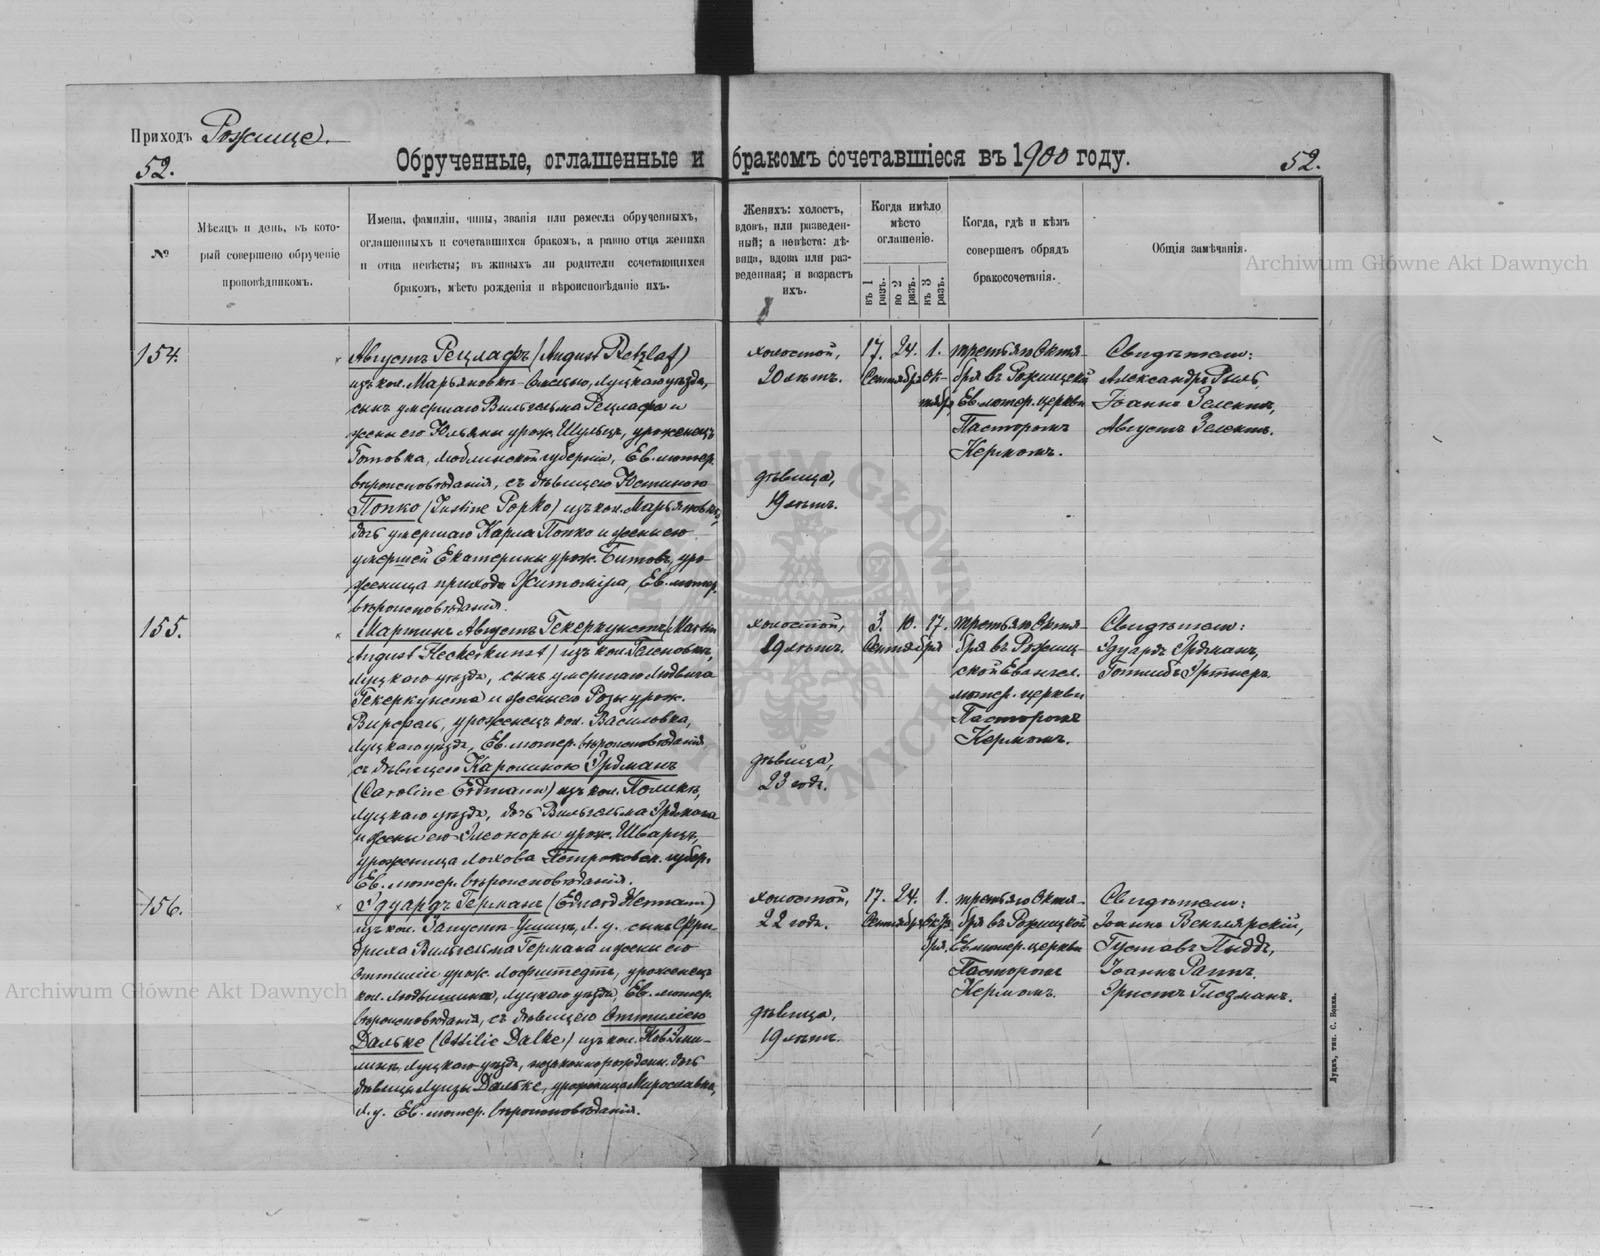 Приходъ Рожище.
52.
Обрученные, оглашенные и бракомъ сочетавшіеся въ 1900 году.
52.
№
Мѣсяцъ и день, въ кото-
рый совершено обрученіе
проповѣдникомъ.
Имена, фамиліи, чины, званія или ремесла обрученныхъ,
оглашенныхъ и сочетавшихся бракомъ, а равно отца жениха
и отца невѣсты; въ живыхъ ли родители сочетающихся
бракомъ, мѣсто рожденія и вѣроисповѣданіе ихъ.
Женихъ: холостъ,
вдовъ, или разведен-
ный; а невѣста: дѣ-
вица, вдова или раз-
веденная; и возрастъ
ихъ.
Когда имѣло
мѣсто
оглашеніе.
въ 1 разъ.
во 2 разъ.
въ 3 разъ.
Когда, гдѣ и кѣмъ
совершенъ обрядъ
бракосочетанія.
Общія замѣчанія.
Archiwum Główne Akt Dawnych
154.
Августъ Рецлафъ (August Retzlaf)
изъ кол. Марьяновки Луцкаго уѣзда,
сынъ умершаго Вильгельма Рецлафа и
жены его Юльяны урож. Шульцъ, уроженецъ
Люблинской губерніи, Ев. лютер.
вѣроисповѣданія, съ дѣвицею Юстиною
Попко (Justine Popko) изъ кол. Марьяновки,
дочь умершаго Карла Попко и жены его
умершей Екатерины урож. Битовъ, уро-
женица прихода Житоміра, Ев. лютер.
вѣроисповѣданія.
холостой,
20 лѣтъ.
дѣвица,
19 лѣтъ.
17. 24. 1.
Сентября Ок-
тября
третьяго Октя-
бря въ Рожищской
Ев. лютер. церкви
Пасторомъ
Кермомъ.
Свидѣтели:
Александръ Рыль,
Іоаннъ Зелентъ,
Августъ Зелентъ.
155.
Мартинъ Августъ Гекеркунстъ (Martin
August Heckerkunst) изъ кол. Геленовки,
Луцкаго уѣзда, сынъ умершаго Людвига
Гекеркунста и жены его Розы урож.
уроженецъ кол. Василовка,
Луцкаго уѣзда, Ев. лютер. вѣроисповѣданія
съ дѣвицею Каролиною Эрдманъ
(Caroline Erdmann) изъ кол. Топилки,
Луцкаго уѣзда, дочь Вильгельма Эрдмана
и жены его Элеоноры урож. Шварцъ,
уроженица Петроковск. губер.
Ев. лютер. вѣроисповѣданія.
холостой,
29 лѣтъ.
дѣвица,
23 года.
3. 10. 17.
Сентября
третьяго Октя-
бря въ Рожищ-
ской Евангел.
лютер. церкви
Пасторомъ
Кермомъ.
Свидѣтели:
Эдуардъ Эрдманъ,
Готлибъ Эртнеръ
156.
Эдуардъ Германъ (Eduard Hermann)
изъ кол. Запустъ-Ушицкъ, Л. у. сынъ Фри-
дриха Вильгельма Германа и жены его
Оттиліи урож. уроженецъ
кол. Людвишинъ, Луцкаго уѣзда, Ев. лютер.
вѣроисповѣданія, съ дѣвицею Оттиліею
Дальке (Ottilie Dalke) изъ кол. Нов. Земи-
линъ, Луцкаго уѣзда, незаконнорожденн. дочь
дѣвицы Луизы Дальке, уроженица Мирославка,
Л. у. Ев. лютер. вѣроисповѣданія.
холостой,
22 года.
дѣвица,
19 лѣтъ.
17. 24. 1.
Сентября Октя-
бря.
третьяго Октя-
бря въ Рожищской
Ев. лютер. церкви
Пасторомъ
Кермомъ.
Свидѣтели:
Іоаннъ Венглярскій,
Густавъ Пыддъ,
Іоаннъ Раппъ.
Эрнстъ Глезманъ.
Archiwum Główne Akt Dawnych
Луцкъ, тип. С. Бонка.